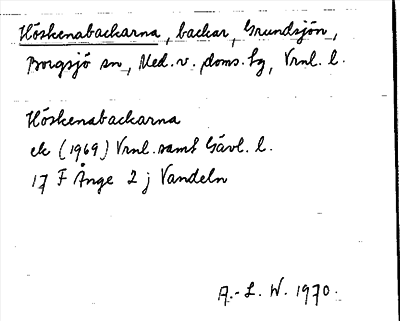 Höskenabackarna, backar, Grundsjön,
Borgsjö sn, Med. v. doms. tg, Vrnl. l.
Höskenabackarna
ek (1969) Vrnl. samt Gävl. l.
17 F Ånge 2 j Vandeln
A.-L. W. 1970.